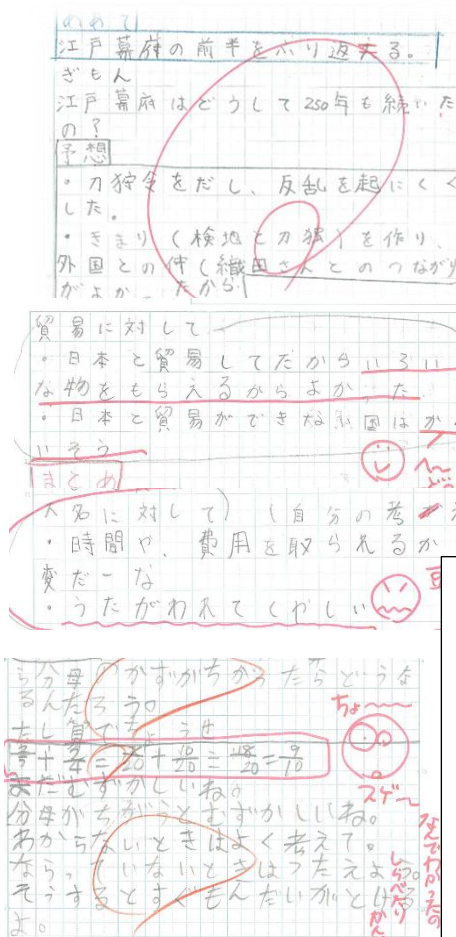 めあて
江戸幕府の前半をふり返える。
ぎもん
江戸幕府はどうして250年も続いた
の?
予想
・刀狩令をだし、反乱を起にくく
した。
・きまり(検地と刀狩)を作り、
外国との仲(織田さんとのつながり
がよかったから
貿易に対して
・日本と貿易してだからいろい
な物をもらえるからよかった
・日本と貿易ができない国はか
いそう
まとめ
大名に対して)(自分の考え
・時間や、費用を取られるか
変だーな
・うたがわれてくやしい
ら分母のかずがちがったらどうな
るんだろう。
たし算で
=10/20=18/20=9/10
まだむずかしいね。
分母がちがうとむずかしいね。
わからないときはよく考えて。
ならっていないときはったえよう。
そうするとすぐもんだいがとける
よ。
ちょ〜〜
スゲ〜
なんでわかったの
しらべたり
かん